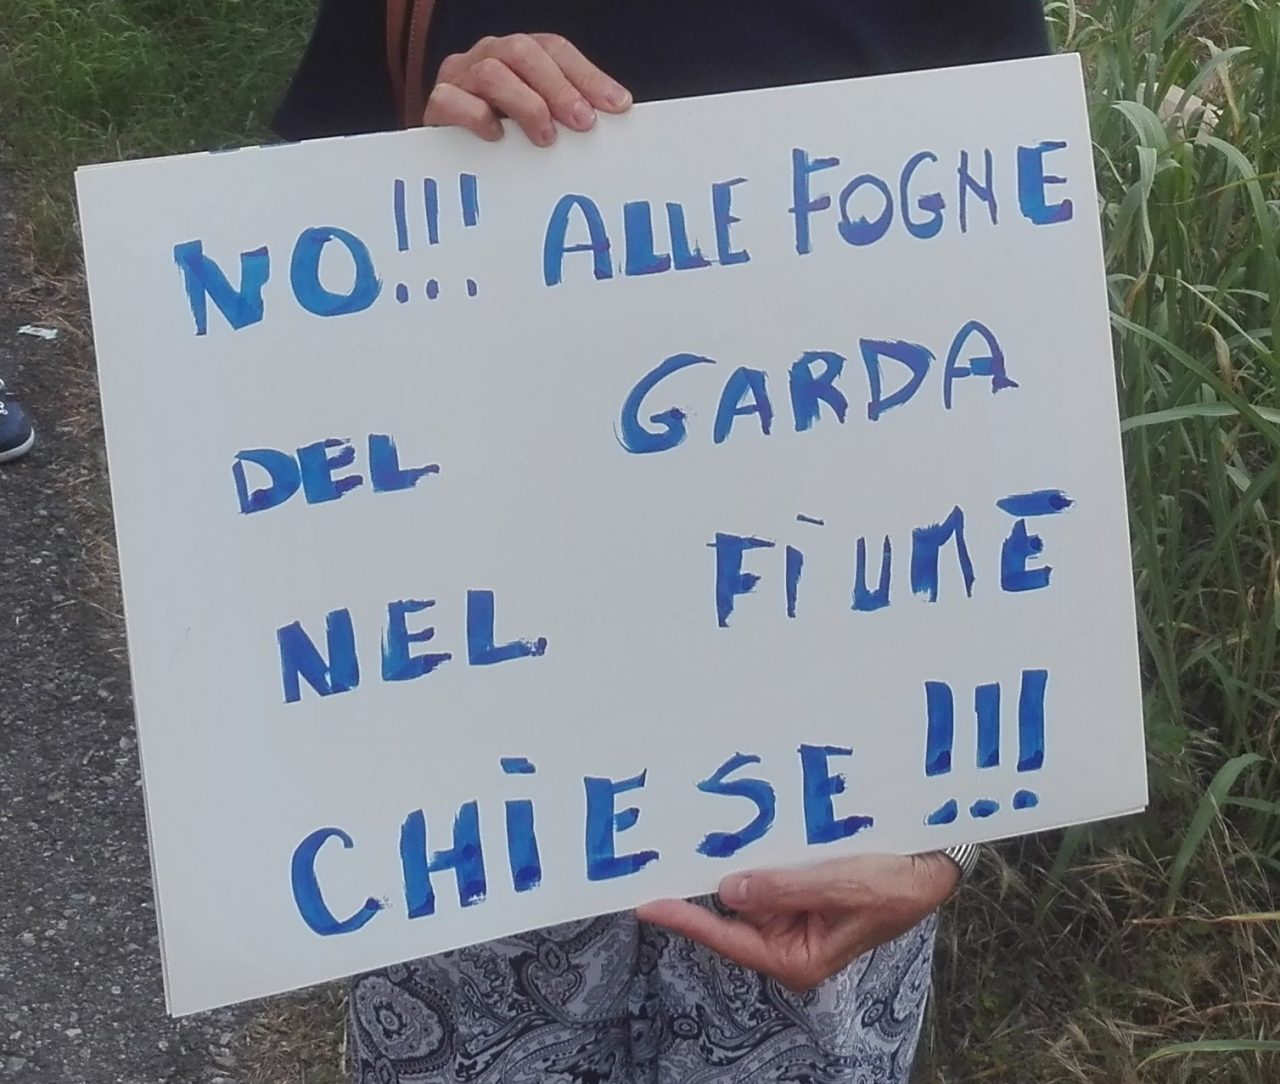 NO!!! ALLE FOGNE
DEL GARDA
NEL FIUME
CHIESE!!!